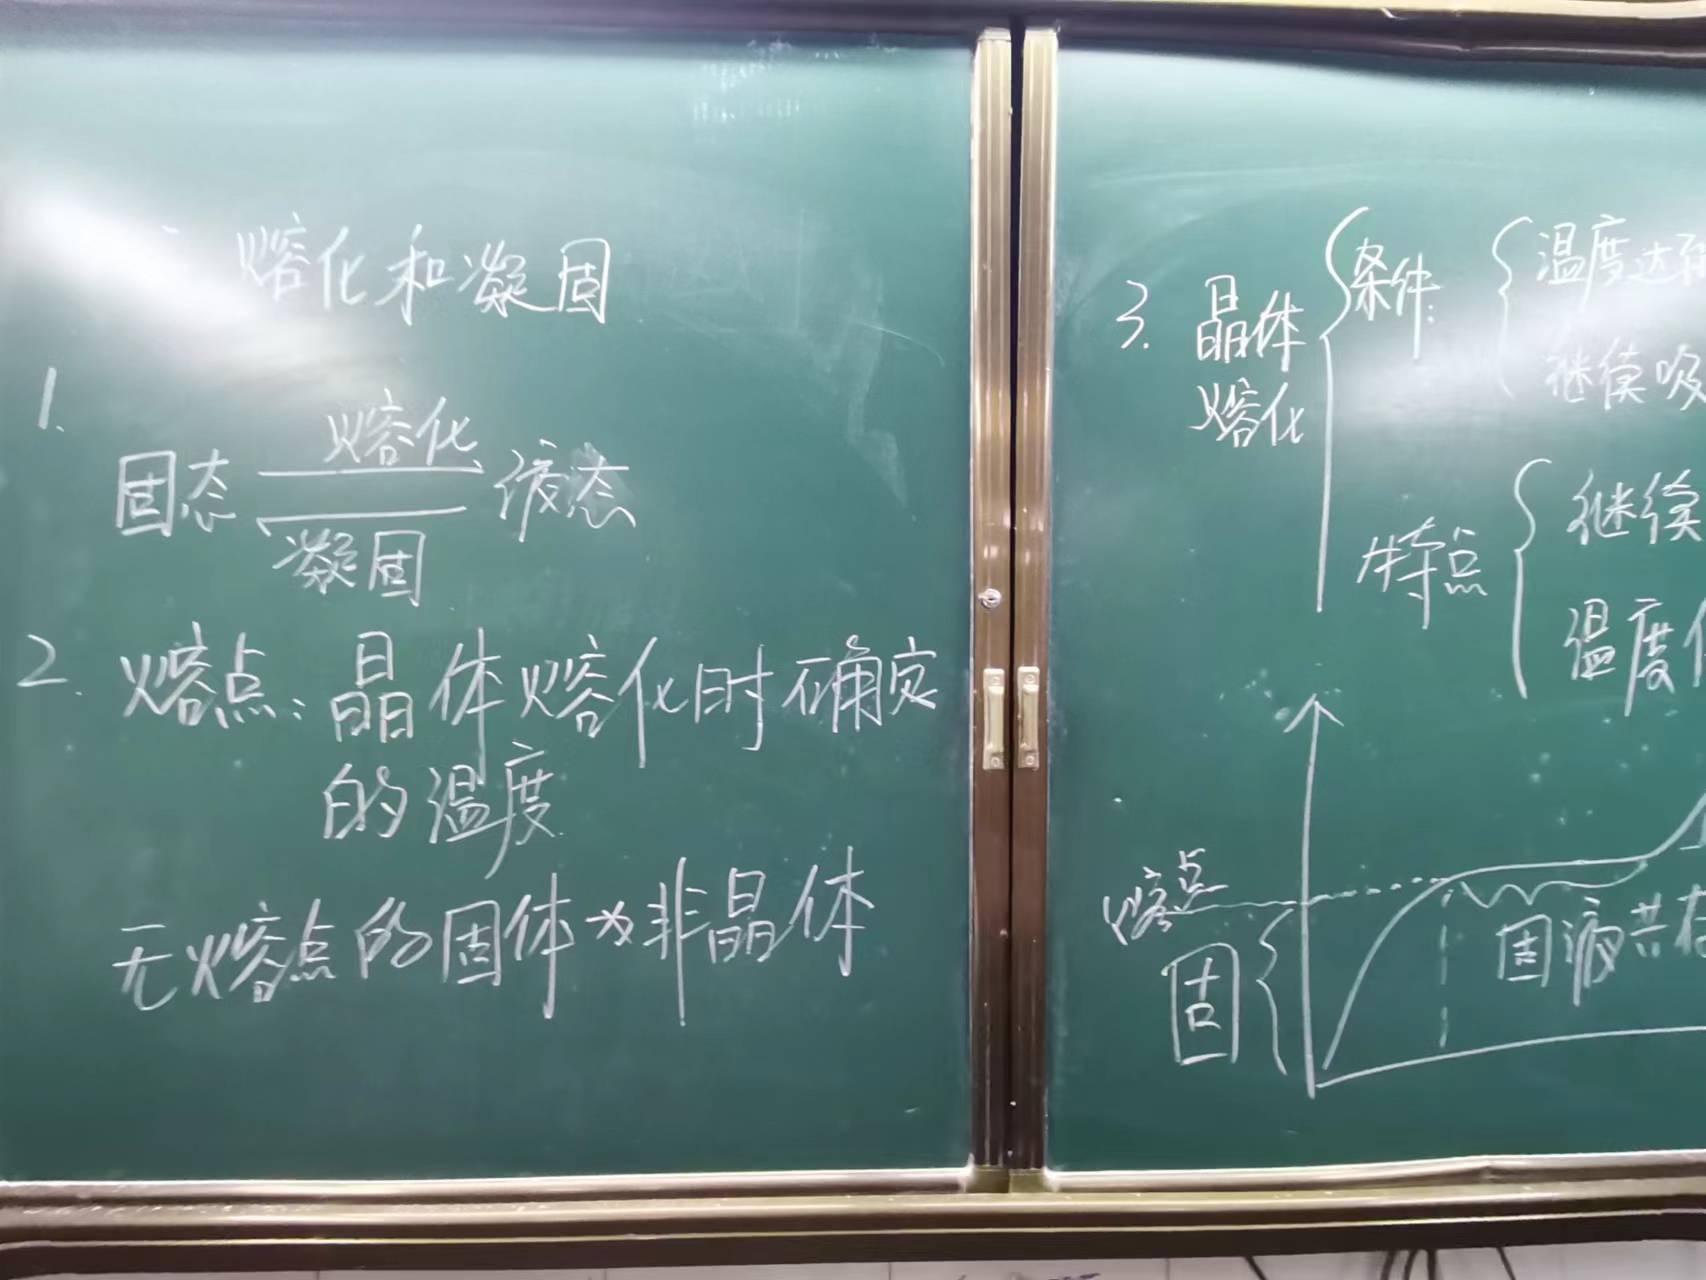 熔化和凝固
1.
熔化
固态 液态
凝固
2. 熔点:晶体熔化时确定
的温度
无熔点的固体为非晶体
3. 晶体
熔化
条件:
温度达
继续吸
特点
继续
温度
熔点
固
固液共存